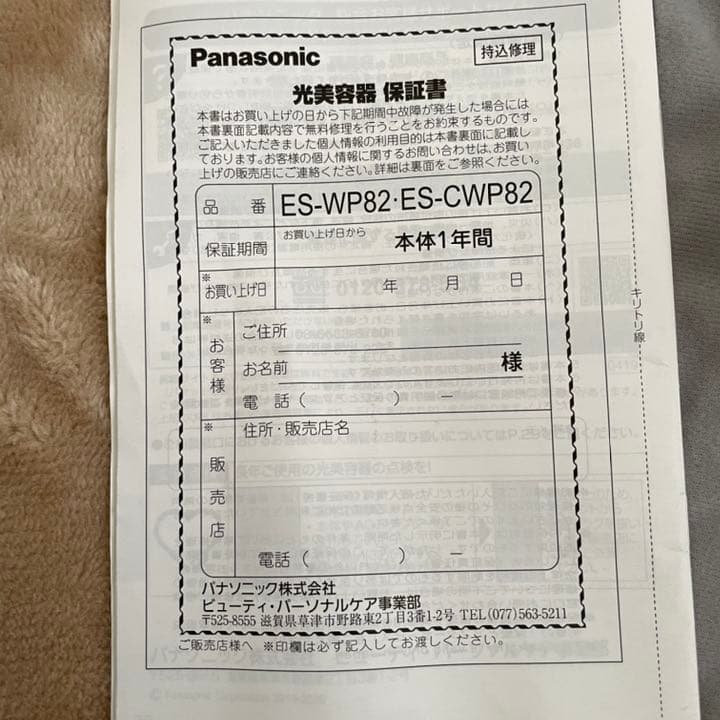 Panasonic
持込修理
光美容器 保証書
本書はお買い上げの日から下記期間中故障が発生した場合には
本書裏面記載内容で無料修理を行うことをお約束するものです。
ご記入いただきました個人情報の利用目的は本書裏面に記載し
ております。お客様の個人情報に関するお問い合わせは、お買い
上げの販売店にご連絡ください。詳細は裏面をご参照ください。
品 番 ES-WP82・ES-CWP82
保証期間 お買い上げ日から 本体1年間
※お買い上げ日 年 月 日
※お客様
ご住所
お名前 様
電 話( ) ー
※販売店
住所・販売店名
電話( ) ー
キリトリ線
パナソニック株式会社
ビューティ・パーソナルケア事業部
〒525-8555 滋賀県草津市野路東2丁目3番1-2号 TEL(077)563-5211
ご販売店様へ ※印欄は必ず記入してお渡しください。